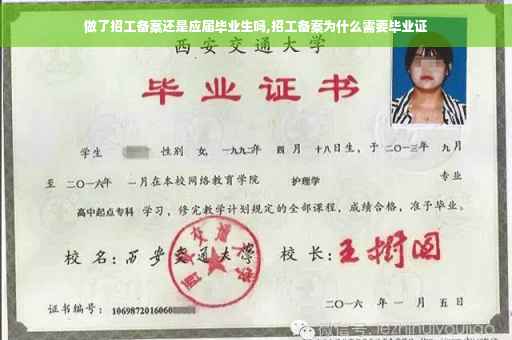 做了招工备案还是应届毕业生吗,招工备案为什么需要毕业证
西安交通大学
毕业证书
学生 性别 女, 一九九二年 四月 十八日生, 于二〇一三年 九月
至 二〇一六年 一月在本校网络教育学院 护理学 专业
高中起点专科 学习, 修完教学计划规定的全部课程, 成绩合格, 准予毕业。
校 名: 西安交通大学 校 长: 王树国
西安交通大学
证书编号: 1069872016060
二〇一六 年 一 月 五 日
微信号: jezhinuiyoujiao